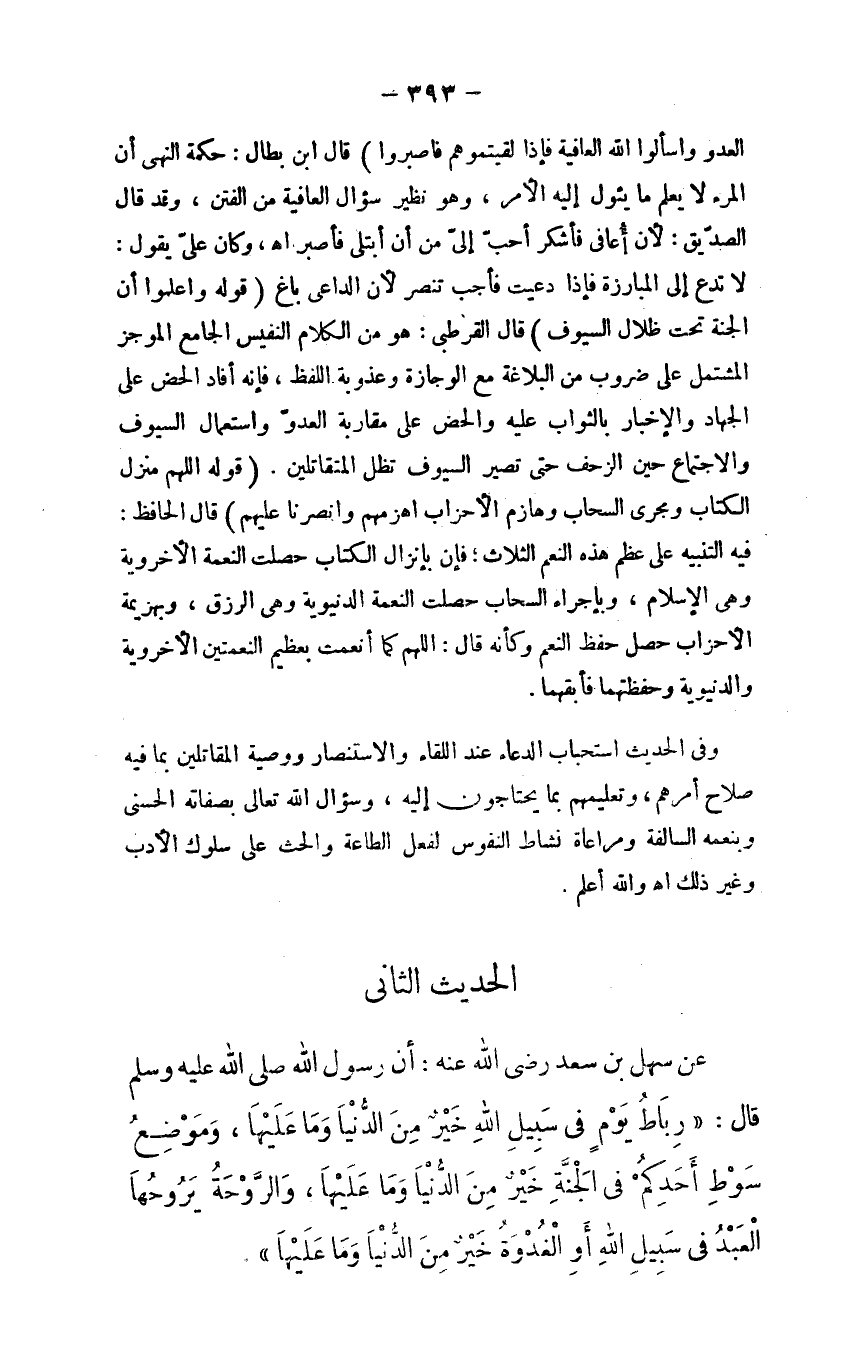 — ٣٩٣ —
العدو واسألوا الله العافية فإذا لقيتموهم فاصبروا ) قال ابن بطال : حكمة النهى أن
المرء لا يعلم ما يئول إليه الأمر ، وهو نظير سؤال العافية من الفتن ، وقد قال
الصدّيق : لأن أُعافى فأشكر أحبّ إلىّ من أن أبتلى فأصبر اه ، وكان علىّ يقول :
لا تدع إلى المبارزة فإذا دعيت فأجب تنصر لأن الداعى باغ ( قوله واعلموا أن
الجنة تحت ظلال السيوف ) قال القرطبى : هو من الكلام النفيس الجامع الموجز
المشتمل على ضروب من البلاغة مع الوجازة وعذوبة اللفظ ، فإنه أفاد الحض على
الجهاد والإخبار بالثواب عليه والحض على مقاربة العدوّ واستعمال السيوف
والاجتماع حين الزحف حتى تصير السيوف تظل المتقاتلين . ( قوله اللهم منزل
الكتاب ومجرى السحاب وهازم الأحزاب اهزمهم وانصرنا عليهم ) قال الحافظ :
فيه التنبيه على عظم هذه النعم الثلاث ؛ فإن بإنزال الكتاب حصلت النعمة الأخروية
وهى الإسلام ، وبإجراء السحاب حصلت النعمة الدنيوية وهى الرزق ، وبهزيمة
الأحزاب حصل حفظ النعم وكأنه قال : اللهم كما أنعمت بعظيم النعمتين الأخروية
والدنيوية وحفظتهما فأبقهما .
وفى الحديث استحباب الدعاء عند اللقاء والاستنصار ووصية المقاتلين بما فيه
صلاح أمرهم ، وتعليمهم بما يحتاجون إليه ، وسؤال الله تعالى بصفاته الحسنى
وبنعمه السالفة ومراعاة نشاط النفوس لفعل الطاعة والحث على سلوك الأدب
وغير ذلك اه والله أعلم .
الحديث الثانى
عن سهل بن سعد رضى الله عنه : أن رسول الله صلى الله عليه وسلم
قال : « رِبَاطُ يَوْمٍ فى سَبِيلِ اللهِ خَيْرٌ مِنَ الدُّنْيَا وَمَا عَلَيْهَا ، وَمَوْضِعُ
سَوْطِ أَحَدِكُمْ فى الْجَنَّةِ خَيْرٌ مِنَ الدُّنْيَا وَمَا عَلَيْهَا ، وَالرَّوْحَةُ يَرُوحُهَا
الْعَبْدُ فى سَبِيلِ اللهِ أَوِ الْغُدْوَةُ خَيْرٌ مِنَ الدُّنْيَا وَمَا عَلَيْهَا » .